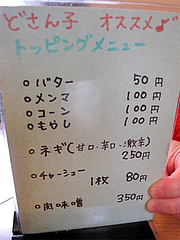 どさん子 オススメ♪
トッピングメニュー
○バター 50円
○メンマ 100円
○コーン 100円
○もやし 100円
○ネギ(甘口・辛口・激辛)
250円
○チャーシュー
1枚 80円
○肉味噌 350円